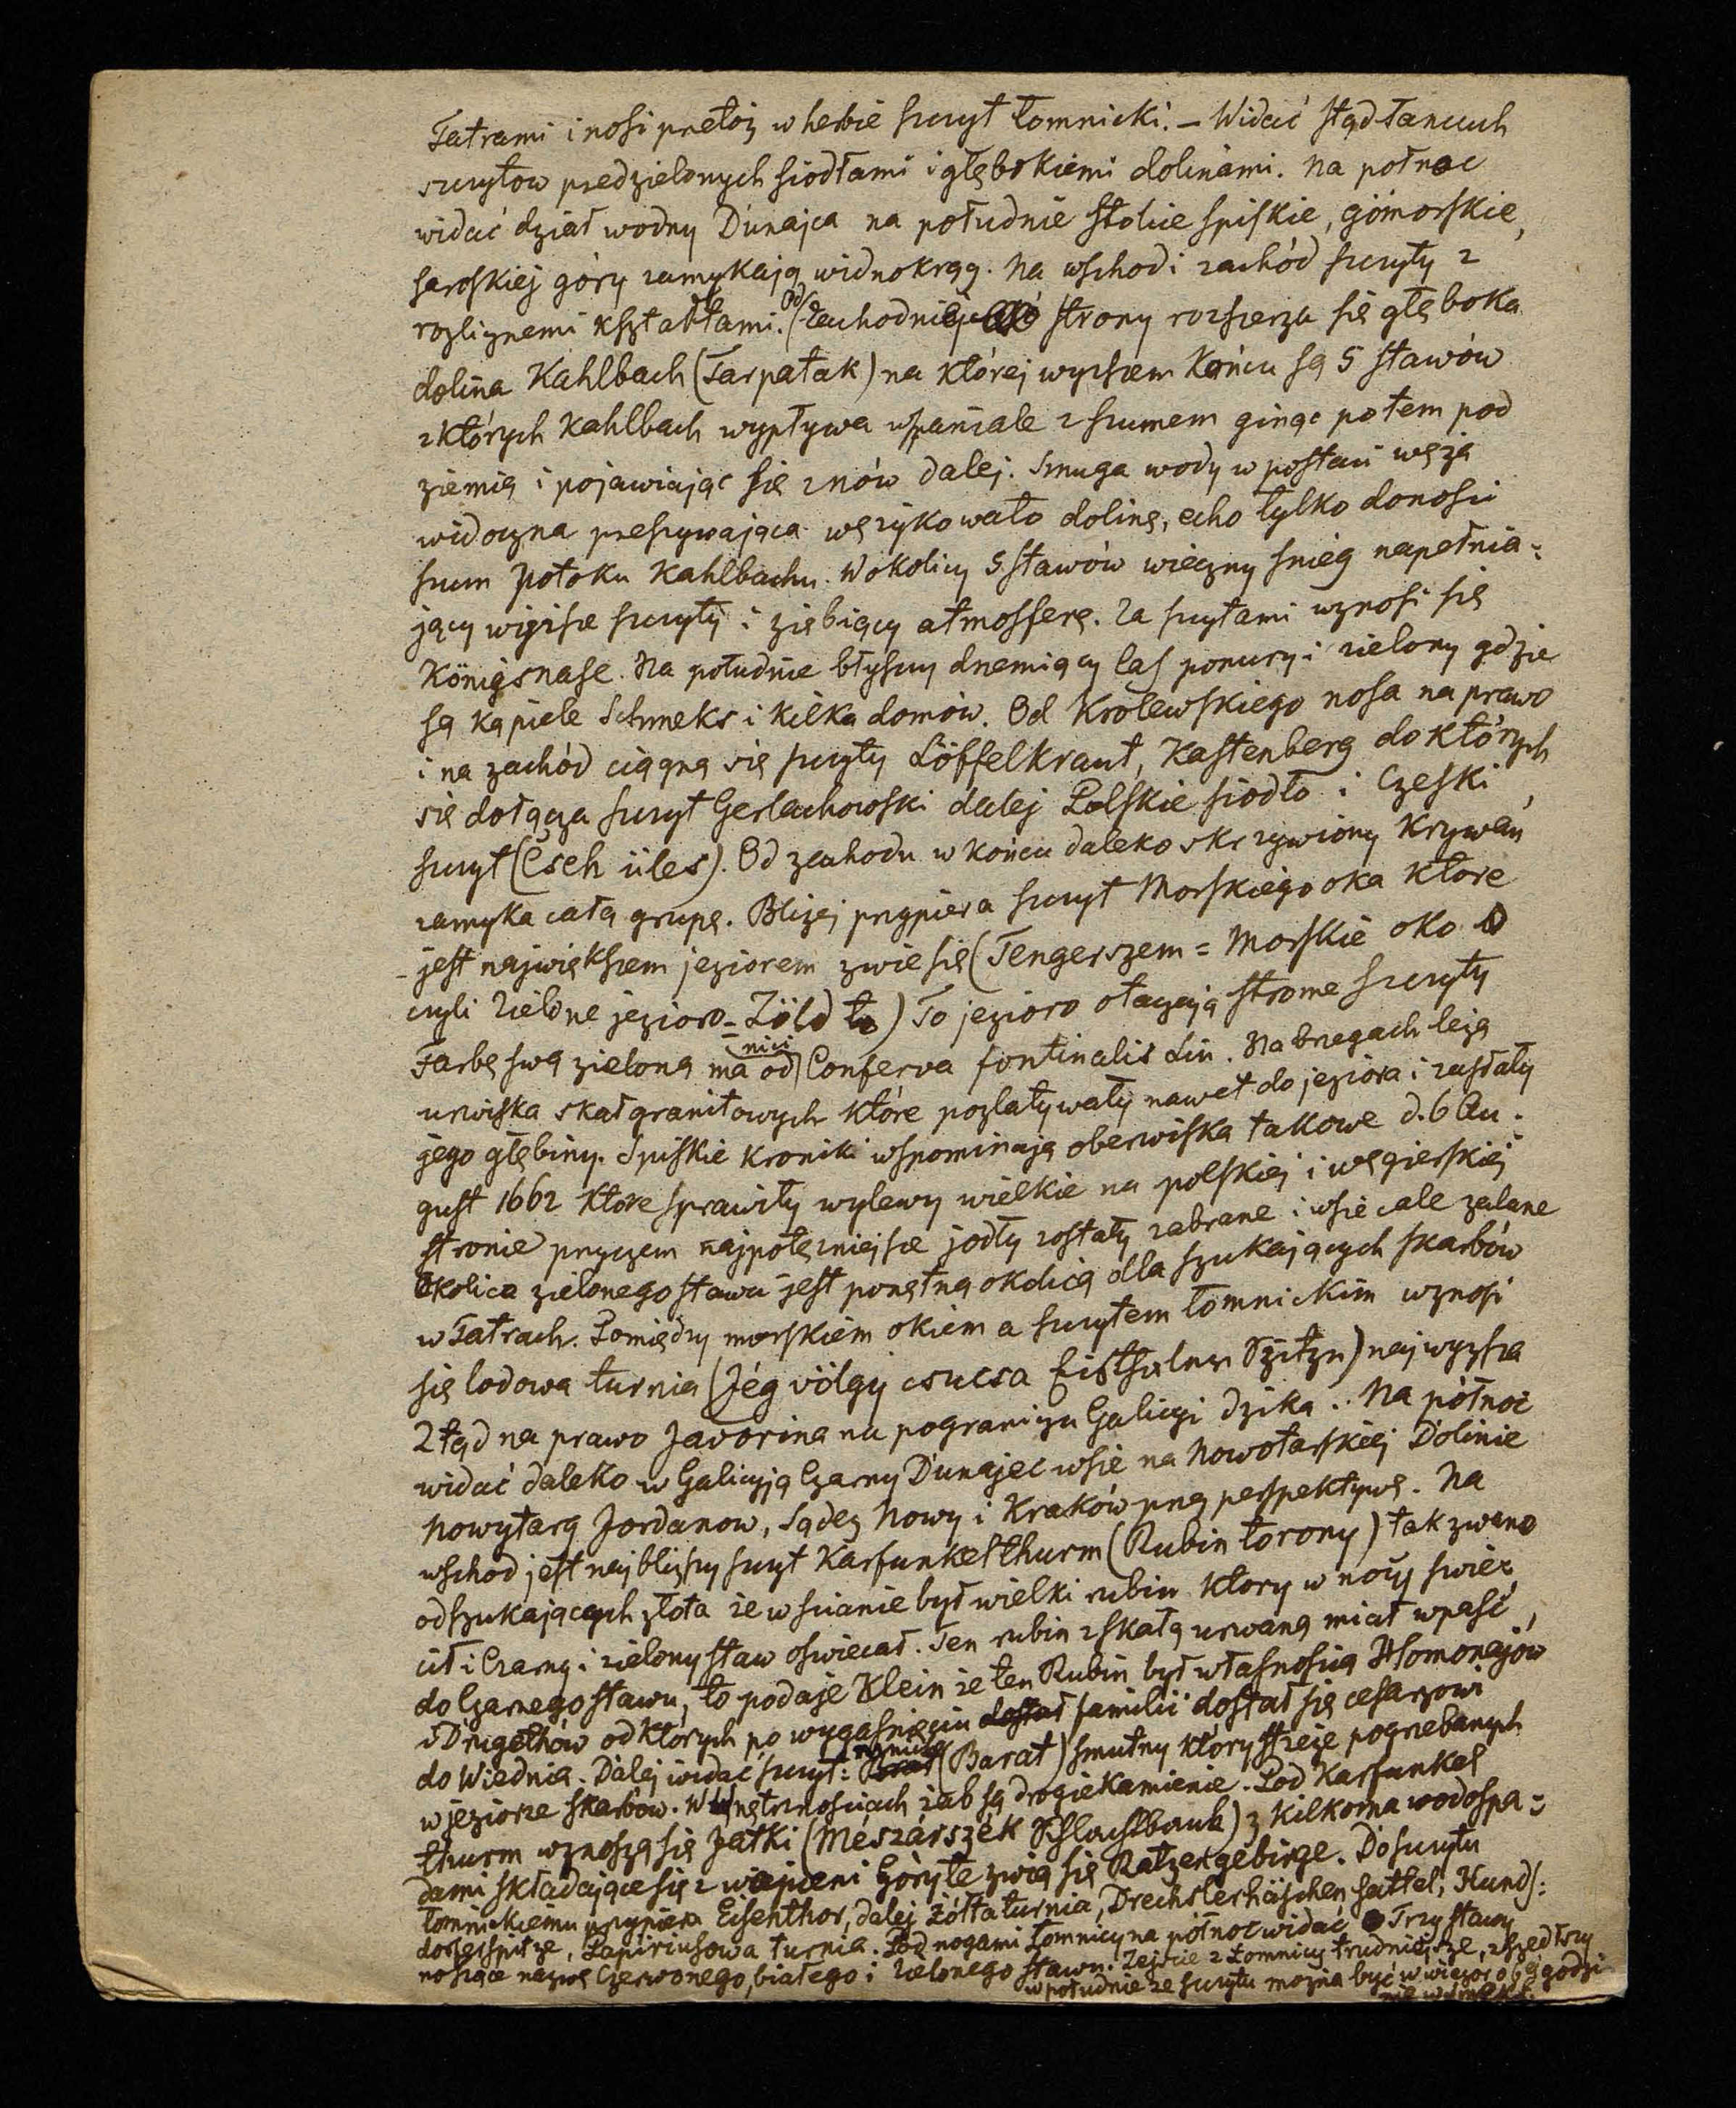 Tatrami i nosi przetoż w herbie szczyt Łomnicki. — Widać stąd łancuch
szczytow przedzielonych siodłami i głębokiemi dolinami. Na połnoc
widać dział wodny Dunajca na południe stolice spiskie, gömorskie,
saroskiej góry zamykają widnokrąg. Na wschod i zachód szczyty z
rozlicznemi kształtami. Od Zachodniej strony rozszerza się głęboka
dolina Kahlbach (Tarpatak) na której wyższem Końcu są 5 stawów
z których Kahlbach wypływa wspaniale z szumem ginąc potem pod
ziemią i pojawiając się znów dalej. Smuga wody w postaci węża
widoczna przeszywająca wężykowato dolinę, echo tylko donosi
szum potoku Kahlbachu. W okolicy 5 stawów wieczny snieg napełnia=
jący wyższe szczyty i ziębiący atmosferę. Za szczytami wznosi się
Königsnase. Na południe błyszczy drzemiący las ponury i zielony gdzie
są kąpiele Schmeks i kilka domów. Od Krolewskiego nosa na prawo
i na zachód ciągną się szczyty Löffelkraut, Kastenberg do których
się dołącza szczyt Gerlachowski dalej Polskie siodło i Czeski
szczyt (Cseh üles). Od zachodu w końcu daleko skrzywiony Krywań
zamyka całą grupę. Bliżej przypiera szczyt Morskiego oka ktore
jest największem jeziorem zwie się (Tengerszem = Morskie oko
czyli Zielone jezioro = Zöld to) To jezioro otaczają strome szczyty
Farbę swą zieloną ma od nici Conferva fontinalis Lin. Na brzegach leżą
urwiska skał granitowych które pozlatywały nawet do jeziora i zasłały
jego głębiny. Spiskie kroniki wspominają oberwiska takowe d. 6 Au=
gust 1662 ktore sprawiły wylewy wielkie na polskiej i węgierskiej
stronie przyczem najpotężniejsze jodły zostały zabrane i wsie całe zalane
Okolica zielonego stawu jest ponętną okolicą dla szukających skarbów
w Tatrach. Pomiędzy morskiem okiem a szczytem Łomnickim wznosi
się lodowa turnia (Jég völgy csucsa Eisthaler Spitze) najwyższa
Ztąd na prawo Javorina na pograniczu Galicyi dzika.. Na północ
widać daleko w Galicyją Czarny Dunajec wsie na Nowotarskiej Dolinie
Nowytarg Jordanow, Sądez Nowy i Kraków przez perspektywę. Na
wschod jest najbliższy szczyt Karfunkelthurm (Rubin torony) tak zwano
od szukających złota że w scianie był wielki rubin ktory w nocy swie=
cił i Czarny i zielony staw oswiecał. Ten rubin z skałą urwaną miał wpaść
do Czarnego stawu, to podaje Klein że ten Rubin był własnosią Homonajów
i Drugethów od których po wygasnięciu familii dostał się cesarzowi
do Wiednia. Dalej widać szczyt: mnicha (Barat) smutny który strzeże pogrzebanych
w jeziorze skarbow. W wnętrznosciach żab są drogie kamienie. Pod Karfunkel
thurm wznoszą się Jatki (Mészárszék Schlachtbank) z kilkoma wodospa=
dami składające się z Góry te zwią się Ratzengebirge. Do szczytu
Łomnickiemu przypiera Eisenthor, dalej Żółta turnia, Drechslerhäschen sattel, Hunds=
dorferspitze, Papiriusowa turnia. Pod nogami Łomnicy na północ widać Trzy stawy
noszące nazwę Czerwonego, białego i Zielonego stawu. Zejście z Łomnicy trudniejsze, zszedłszy
w południe ze szczytu można być w wieczor o 6ej godzi
nie w Smeks.